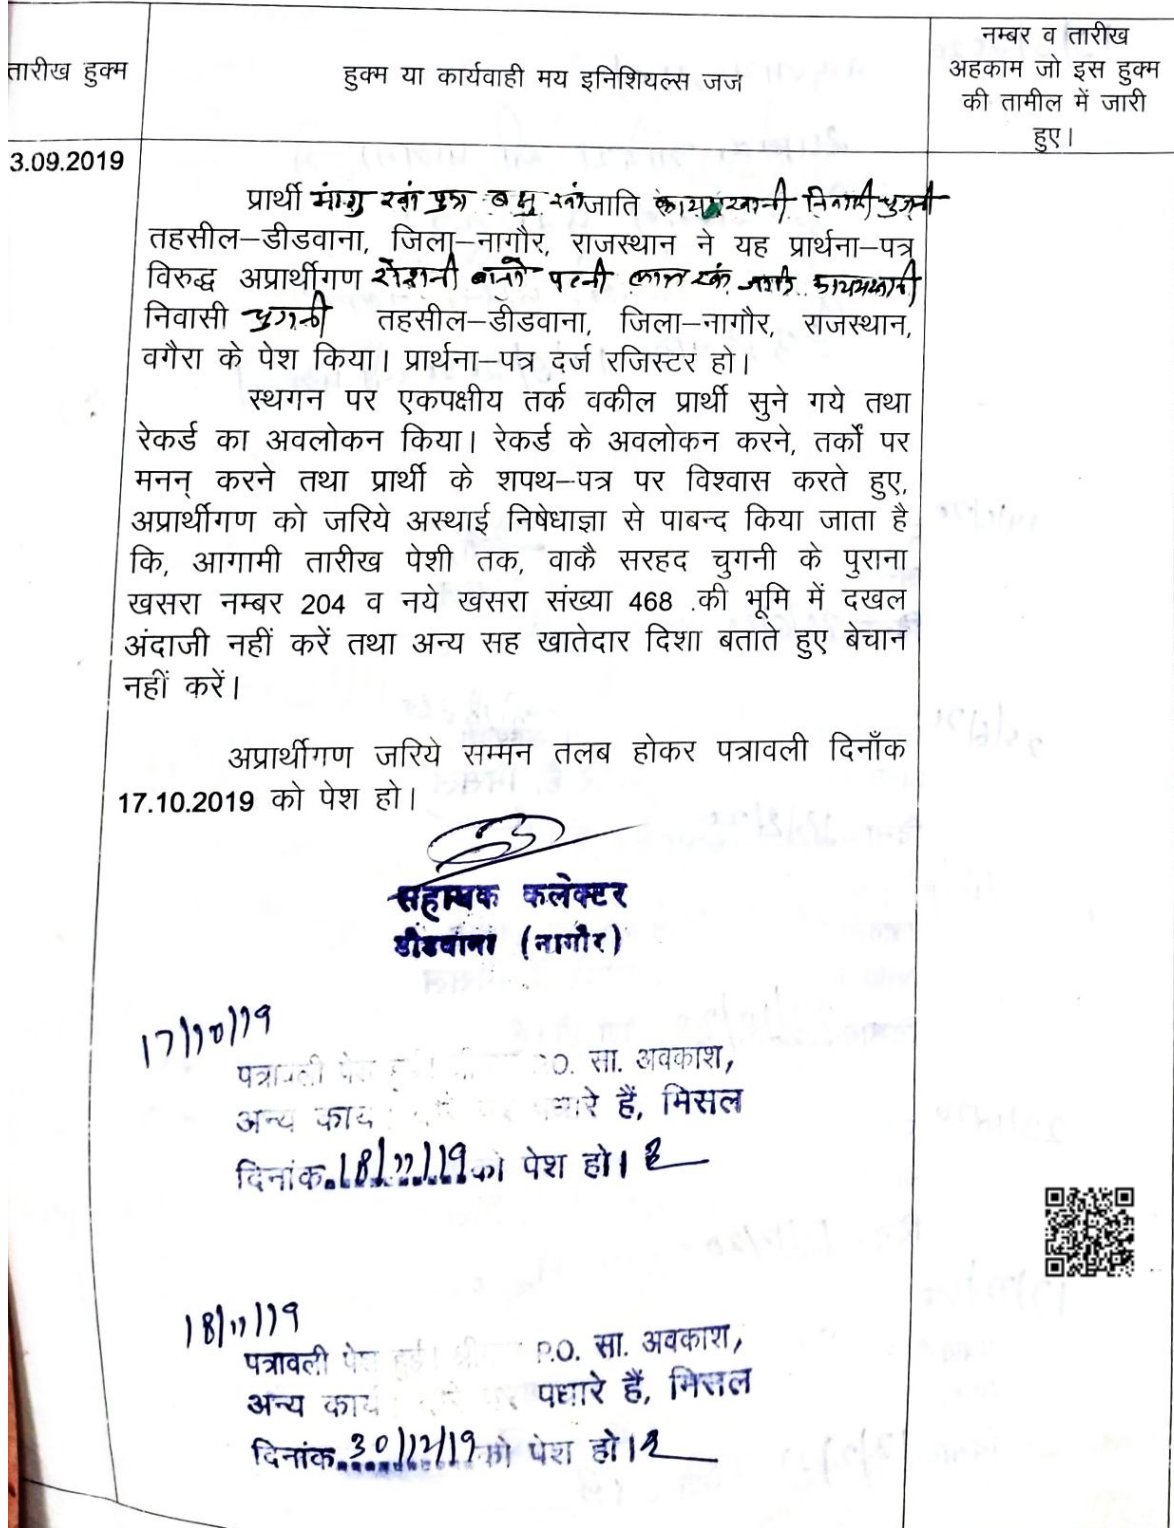 तारीख हुक्म
हुक्म या कार्यवाही मय इनिशियल्स जज
नम्बर व तारीख
अहकाम जो इस हुक्म
की तामील में जारी
हुए।
3.09.2019
प्रार्थी मांगु खां पुत्र बक्षु खां जाति कायमखानी निवासी चुगनी
तहसील–डीडवाना, जिला–नागौर, राजस्थान ने यह प्रार्थना–पत्र
विरुद्ध अप्रार्थीगण रोशनी बानो पत्नी लाल खां जाति कायमखानी
निवासी चुगनी तहसील–डीडवाना, जिला–नागौर, राजस्थान,
वगैरा के पेश किया। प्रार्थना–पत्र दर्ज रजिस्टर हो।
स्थगन पर एकपक्षीय तर्क वकील प्रार्थी सुने गये तथा
रेकर्ड का अवलोकन किया। रेकर्ड के अवलोकन करने, तर्कों पर
मनन् करने तथा प्रार्थी के शपथ–पत्र पर विश्वास करते हुए,
अप्रार्थीगण को जरिये अस्थाई निषेधाज्ञा से पाबन्द किया जाता है
कि, आगामी तारीख पेशी तक, वाकै सरहद चुगनी के पुराना
खसरा नम्बर 204 व नये खसरा संख्या 468 .की भूमि में दखल
अंदाजी नहीं करें तथा अन्य सह खातेदार दिशा बताते हुए बेचान
नहीं करें।
अप्रार्थीगण जरिये सम्मन तलब होकर पत्रावली दिनाँक
17.10.2019 को पेश हो।
सहायक कलेक्टर
डीडवाना (नागौर)
17/10/19
पत्रावली पेश हुई। P.O. सा. अवकाश,
अन्य कार्य पधारे हैं, मिसल
दिनांक 18/11/19 को पेश हो।
18/11/19
पत्रावली पेश हुई। P.O. सा. अवकाश,
अन्य कार्य पधारे हैं, मिसल
दिनांक 30/12/19 को पेश हो।